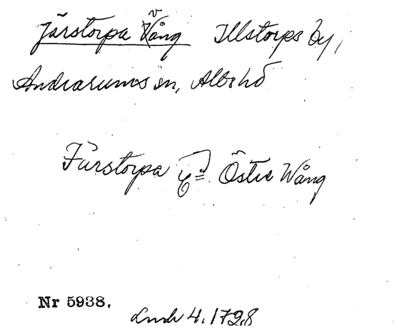 Järstorpa Vång Illstorps by,
Andrarums sn, Albo hd
Järstorpa Östre Wång
Nr 5938.
Lmh 4. 1728